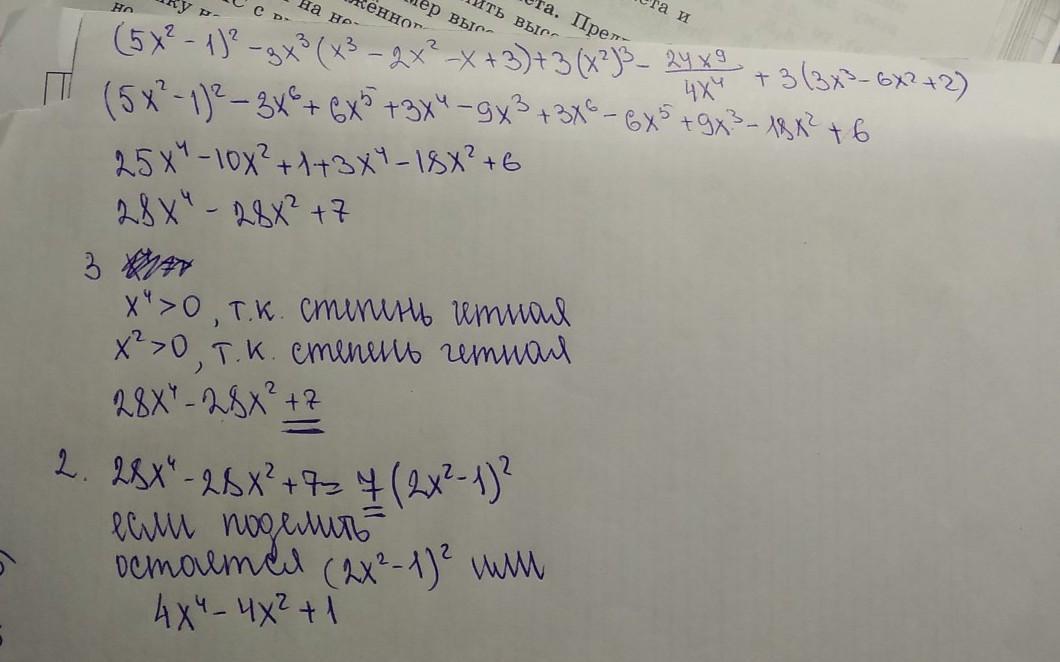 ета и
ета. Пред
ить выс
мер выс
жённог
на не
С с в
ку н
но
(5x² - 1)² - 3x³(x³ - 2x² - x + 3) + 3(x²)³ - 24x⁹/4x⁴ + 3(3x³ - 6x² + 2)
(5x² - 1)² - 3x⁶ + 6x⁵ + 3x⁴ - 9x³ + 3x⁶ - 6x⁵ + 9x³ - 18x² + 6
25x⁴ - 10x² + 1 + 3x⁴ - 18x² + 6
28x⁴ - 28x² + 7
3
x⁴ > 0, т.к. степень четная
x² > 0, т.к. степень четная
28x⁴ - 28x² + 7
2. 28x⁴ - 28x² + 7 = 7(2x² - 1)²
если поделить
остается (2x² - 1)² или
4x⁴ - 4x² + 1